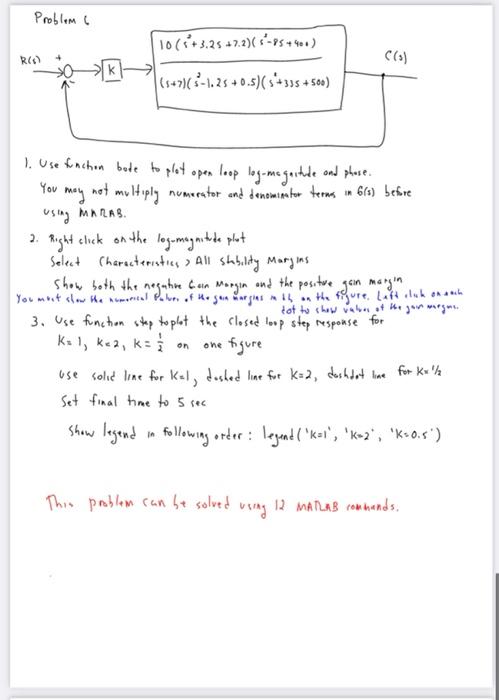 Problem 6
R(s)
+
-
K
10(s²+3.2s+7.2)(s²-8s+400)
(s+7)(s²-1.2s+0.5)(s²+33s+500)
C(s)
1. Use function bode to plot open loop log-magnitude and phase.
You may not multiply numerator and denominator terms in G(s) before
using MATLAB.
2. Right click on the log-magnitude plot
Select Characteristics > All Stability Margins
Show both the negative Gain Margin and the positive gain margin
You must show the numerical values of the gain margins in db on the figure. Left click on each
dot to show values of the gain margins.
3. Use function step to plot the closed loop step response for
K=1, K=2, K=½ on one figure
Use solid line for K=1, dashed line for K=2, dashdot line for K=1/2
Set final time to 5 sec
Show legend in following order: legend('K=1', 'K=2', 'K=0.5')
This problem can be solved using 12 MATLAB commands.